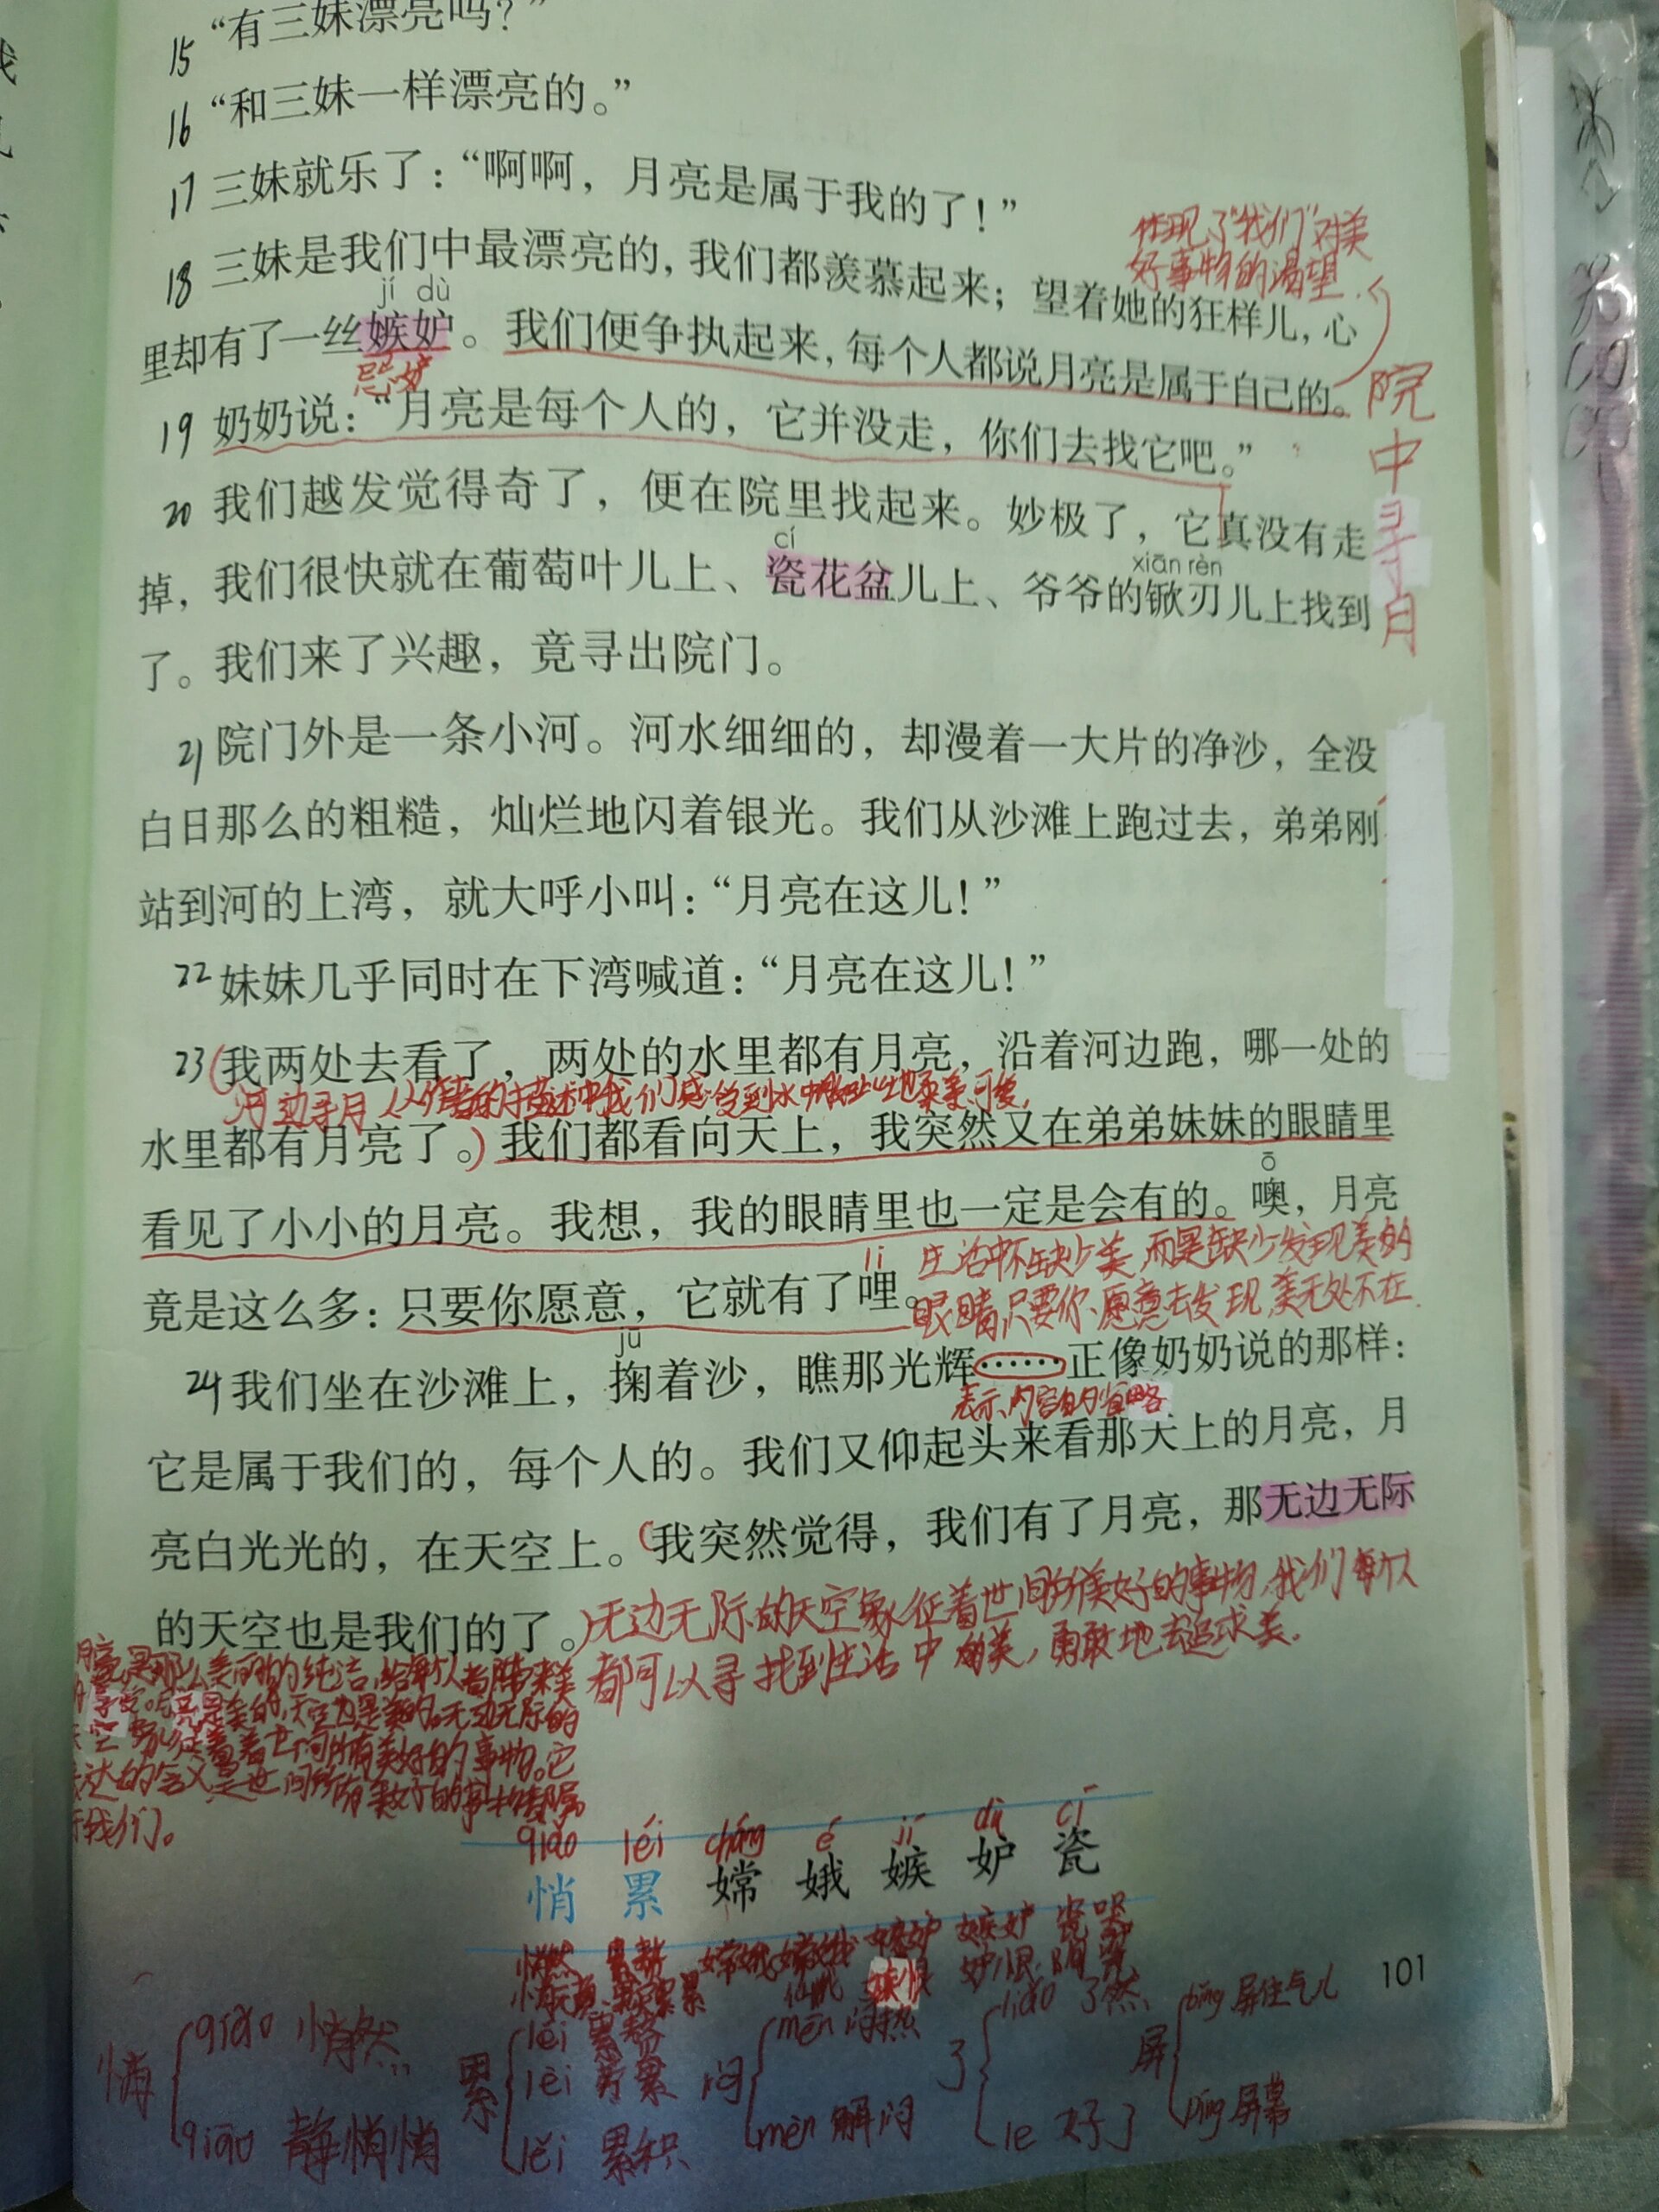 15 “有三妹漂亮吗？”
16 “和三妹一样漂亮的。”
17 三妹就乐了：“啊啊，月亮是属于我的了！”
体现了“我们”对美
好事物的渴望.
18 三妹是我们中最漂亮的，我们都羡慕起来；望着她的狂样儿，心
jí dù
里却有了一丝嫉妒。我们便争执起来，每个人都说月亮是属于自己的。
忌妒
院中寻月
19 奶奶说：“月亮是每个人的，它并没走，你们去找它吧。”
20 我们越发觉得奇了，便在院里找起来。妙极了，它真没有走
cí xiān rèn
掉，我们很快就在葡萄叶儿上、瓷花盆儿上、爷爷的锨刃儿上找到
了。我们来了兴趣，竟寻出院门。
21 院门外是一条小河。河水细细的，却漫着一大片的净沙，全没
白日那么的粗糙，灿烂地闪着银光。我们从沙滩上跑过去，弟弟刚
站到河的上湾，就大呼小叫：“月亮在这儿！”
22 妹妹几乎同时在下湾喊道：“月亮在这儿！”
23 (我两处去看了，两处的水里都有月亮，沿着河边跑，哪一处的
河边寻月 从作者的描述中我们感受到水中
水里都有月亮了。) 我们都看向天上，我突然又在弟弟妹妹的眼睛里
ō
看见了小小的月亮。我想，我的眼睛里也一定是会有的。噢，月亮
li
生活中不缺少美，而是缺少发现美的
竟是这么多：只要你愿意，它就有了哩。
眼睛，只要你愿意去发现，美无处不在.
jū
24 我们坐在沙滩上，掬着沙，瞧那光辉……正像奶奶说的那样：
表示内容的省略
它是属于我们的，每个人的。我们又仰起头来看那天上的月亮，月
亮白光光的，在天空上。(我突然觉得，我们有了月亮，那无边无际
的天空也是我们的了。)
无边无际的天空象征着世间所有美好的事物，我们每个人
都可以寻找到生活中的美，勇敢地去追求美.
月亮是那么美丽的纯洁，给每个人都带来美
的享受。月亮是美的，天空也是美的。无边无际的
天空象征着世间所有美好的事物。它
表达的含义是世间所有美好的事物都属
于我们。
qiǎo léi cháng é jí dù cí
悄 累 嫦 娥 嫉 妒 瓷
悄然 累赘 嫦娥 嫦娥 嫉妒 嫉妒 瓷器
仙娥 嫉恨 妒恨
101
悄 qiǎo 悄然
qiāo 静悄悄
累 léi 累赘
lèi 劳累
lěi 累积
闷 mēn 闷热
mèn 解闷
了 liǎo 了然
le 好了
屏 bǐng 屏住气儿
píng 屏幕